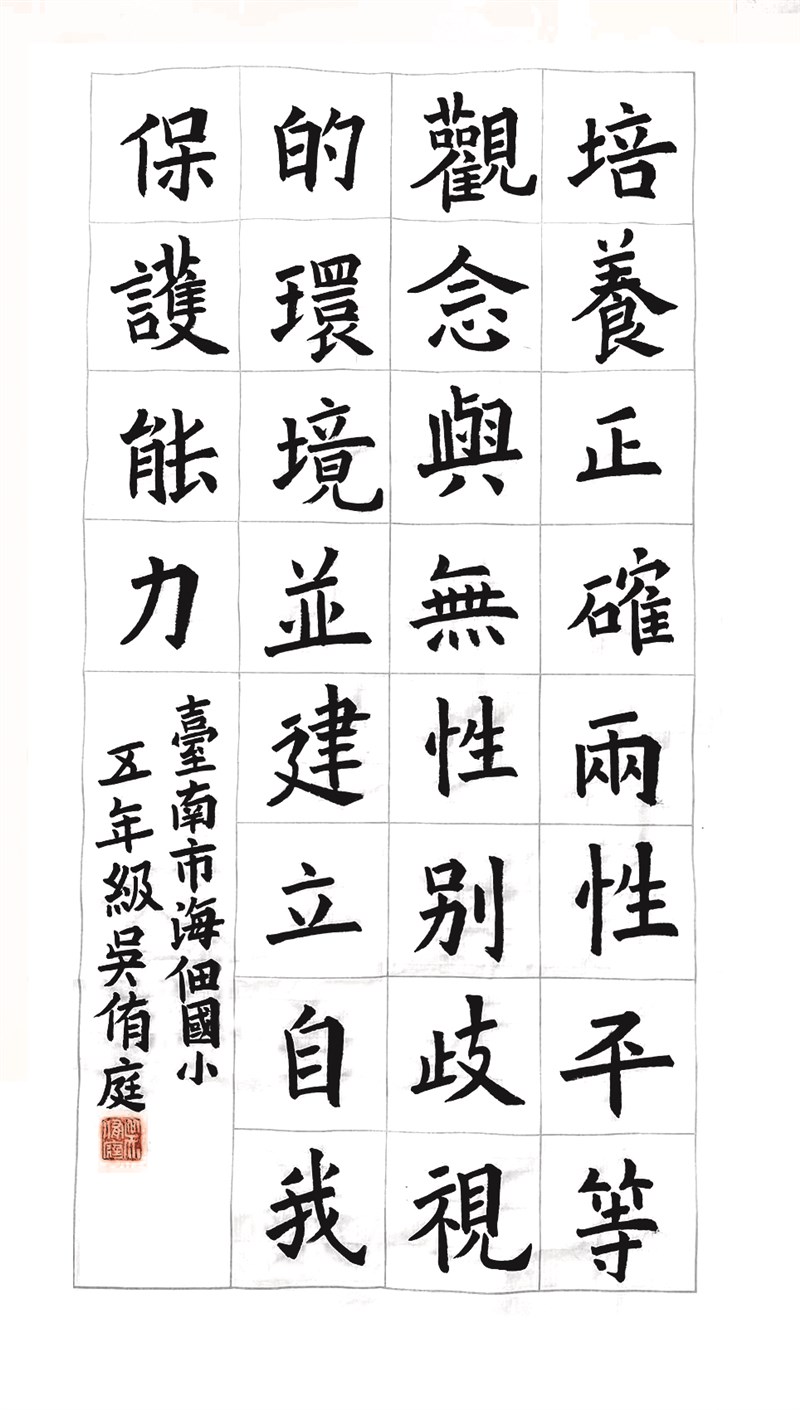 培養正確兩性平等
觀念與無性別歧視
的環境並建立自我
保護能力
臺南市海佃國小
五年級吳侑庭